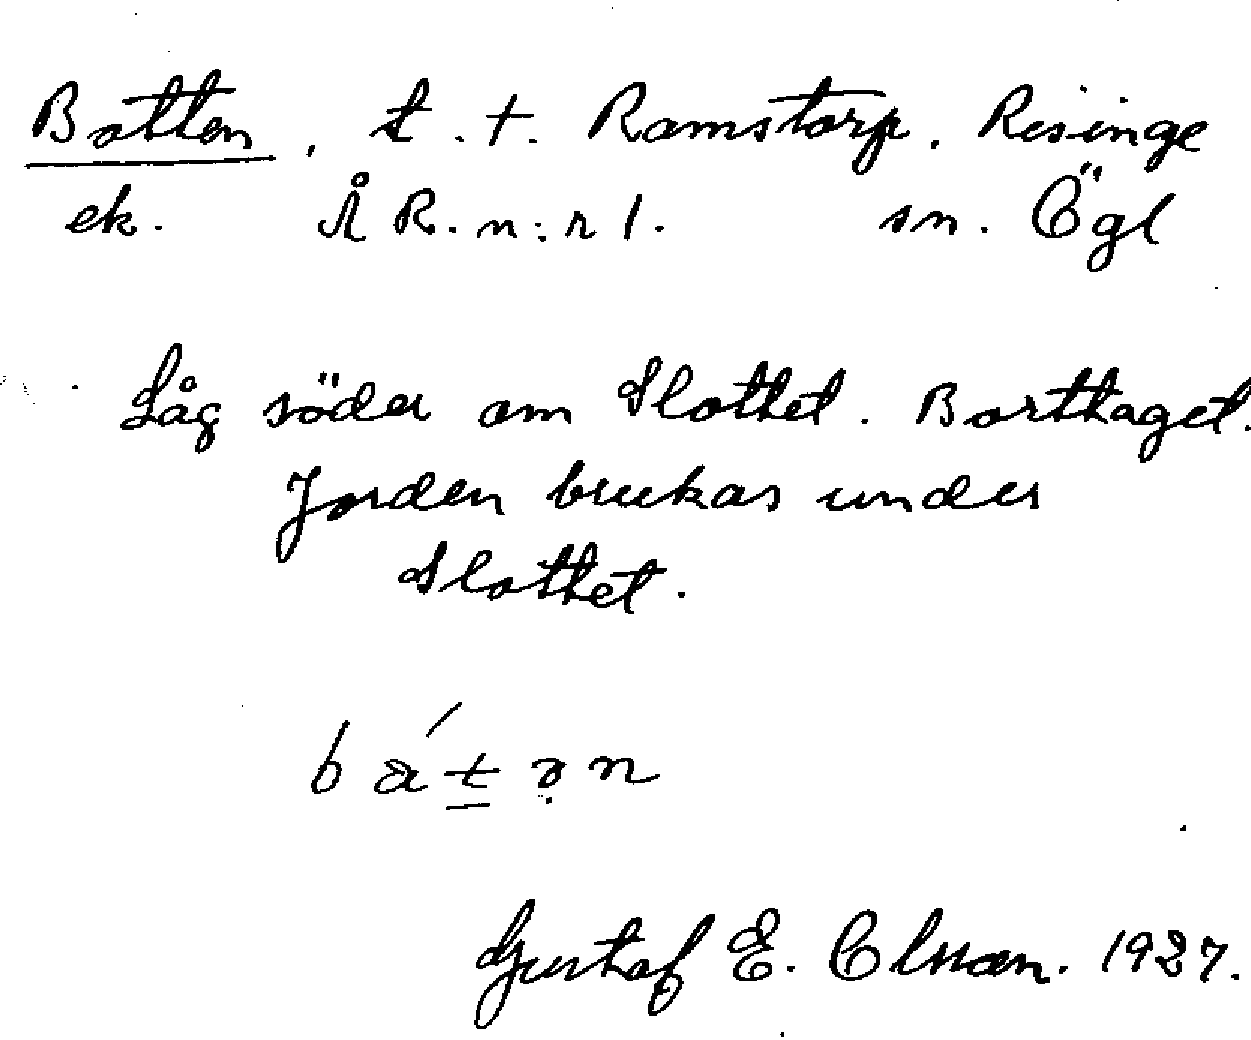 Botten, t. t. Ramstorp. Risinge
ek. ÅR. n:r 1. sn. Ögl
Låg söder om Slottet. Borttaget.
Jorden brukas under
Slottet.
Gustaf E. Olsson. 1927.